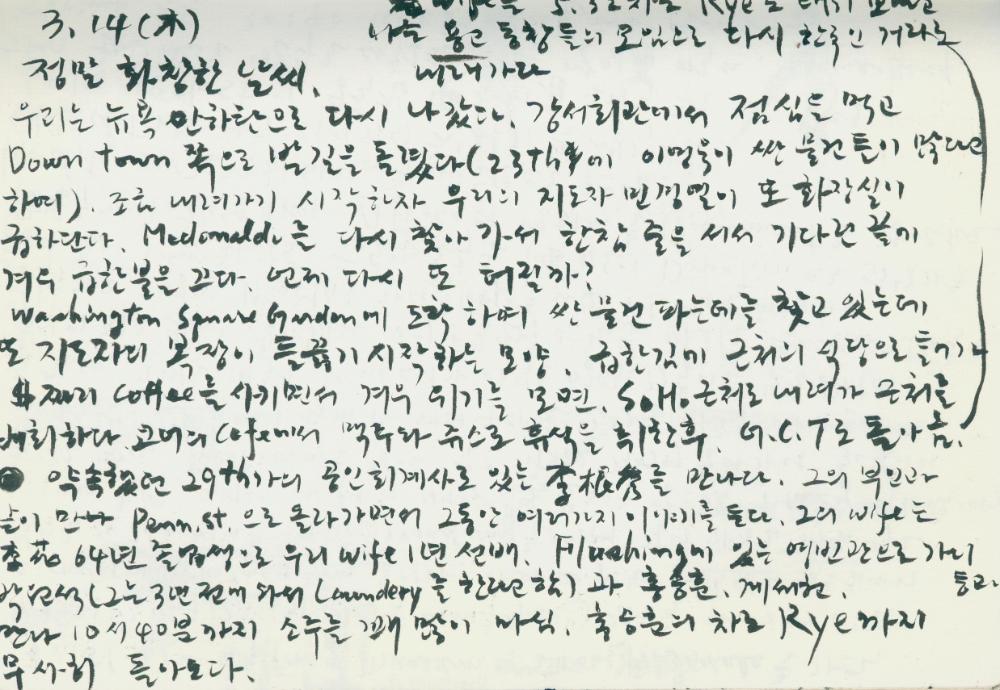 3. 14 (木)
wife를 5:32차로 Rye로
나는 용고 동창들의 모임으로 다시 한국인 거리로
내려가다
정말 화창한 날씨.
우리는 뉴욕 만하탄으로 다시 나갔다. 강서회관에서 점심을 먹고
Down town 쪽으로 발길을 돌렸다(23th 에 이명욱이 싼 물건들이 많다고
하여). 조금 내려가기 시작하자 우리의 지도자 민경열이 또 화장실이
급하단다. Mcdonald를 다시 찾아가서 한참 줄을 서서 기다린 끝에
겨우 급한불을 끄다. 언제 다시 또 터질까?
Washington Square Garden에 도착하여 싼 물건 파는데를 찾고 있는데
또 지도자의 복장이 들끓기 시작하는 모양. 급한김에 근처의 식당으로 들어가
짜리 coffee를 사키면서 겨우 위기를 모면. SoHo 근처로 내려가 근처를
배회하다 코너의 Cafe에서 맥주와 쥬스로 휴식을 취한후 G.C.T로 돌아옴.
약속했던 29th가의 공인회계사로 있는 李根 를 만나다. 그의 부인과
만나 Penn. st. 으로 올라가면서 그동안 여러가지 이야기를 듣다. 그의 wife는
64년 졸업생으로 우리 wife 1년 선배. Flushing에 있는 예반관으로 가니
박원석(그는 3년전에 와서 Laundery를 한다고 함)과 홍승훈, 계세현, 등과
만나 10시 40분까지 소주를 꽤 많이 마심. 홍승훈의 차로 Rye까지
무사히 돌아오다.